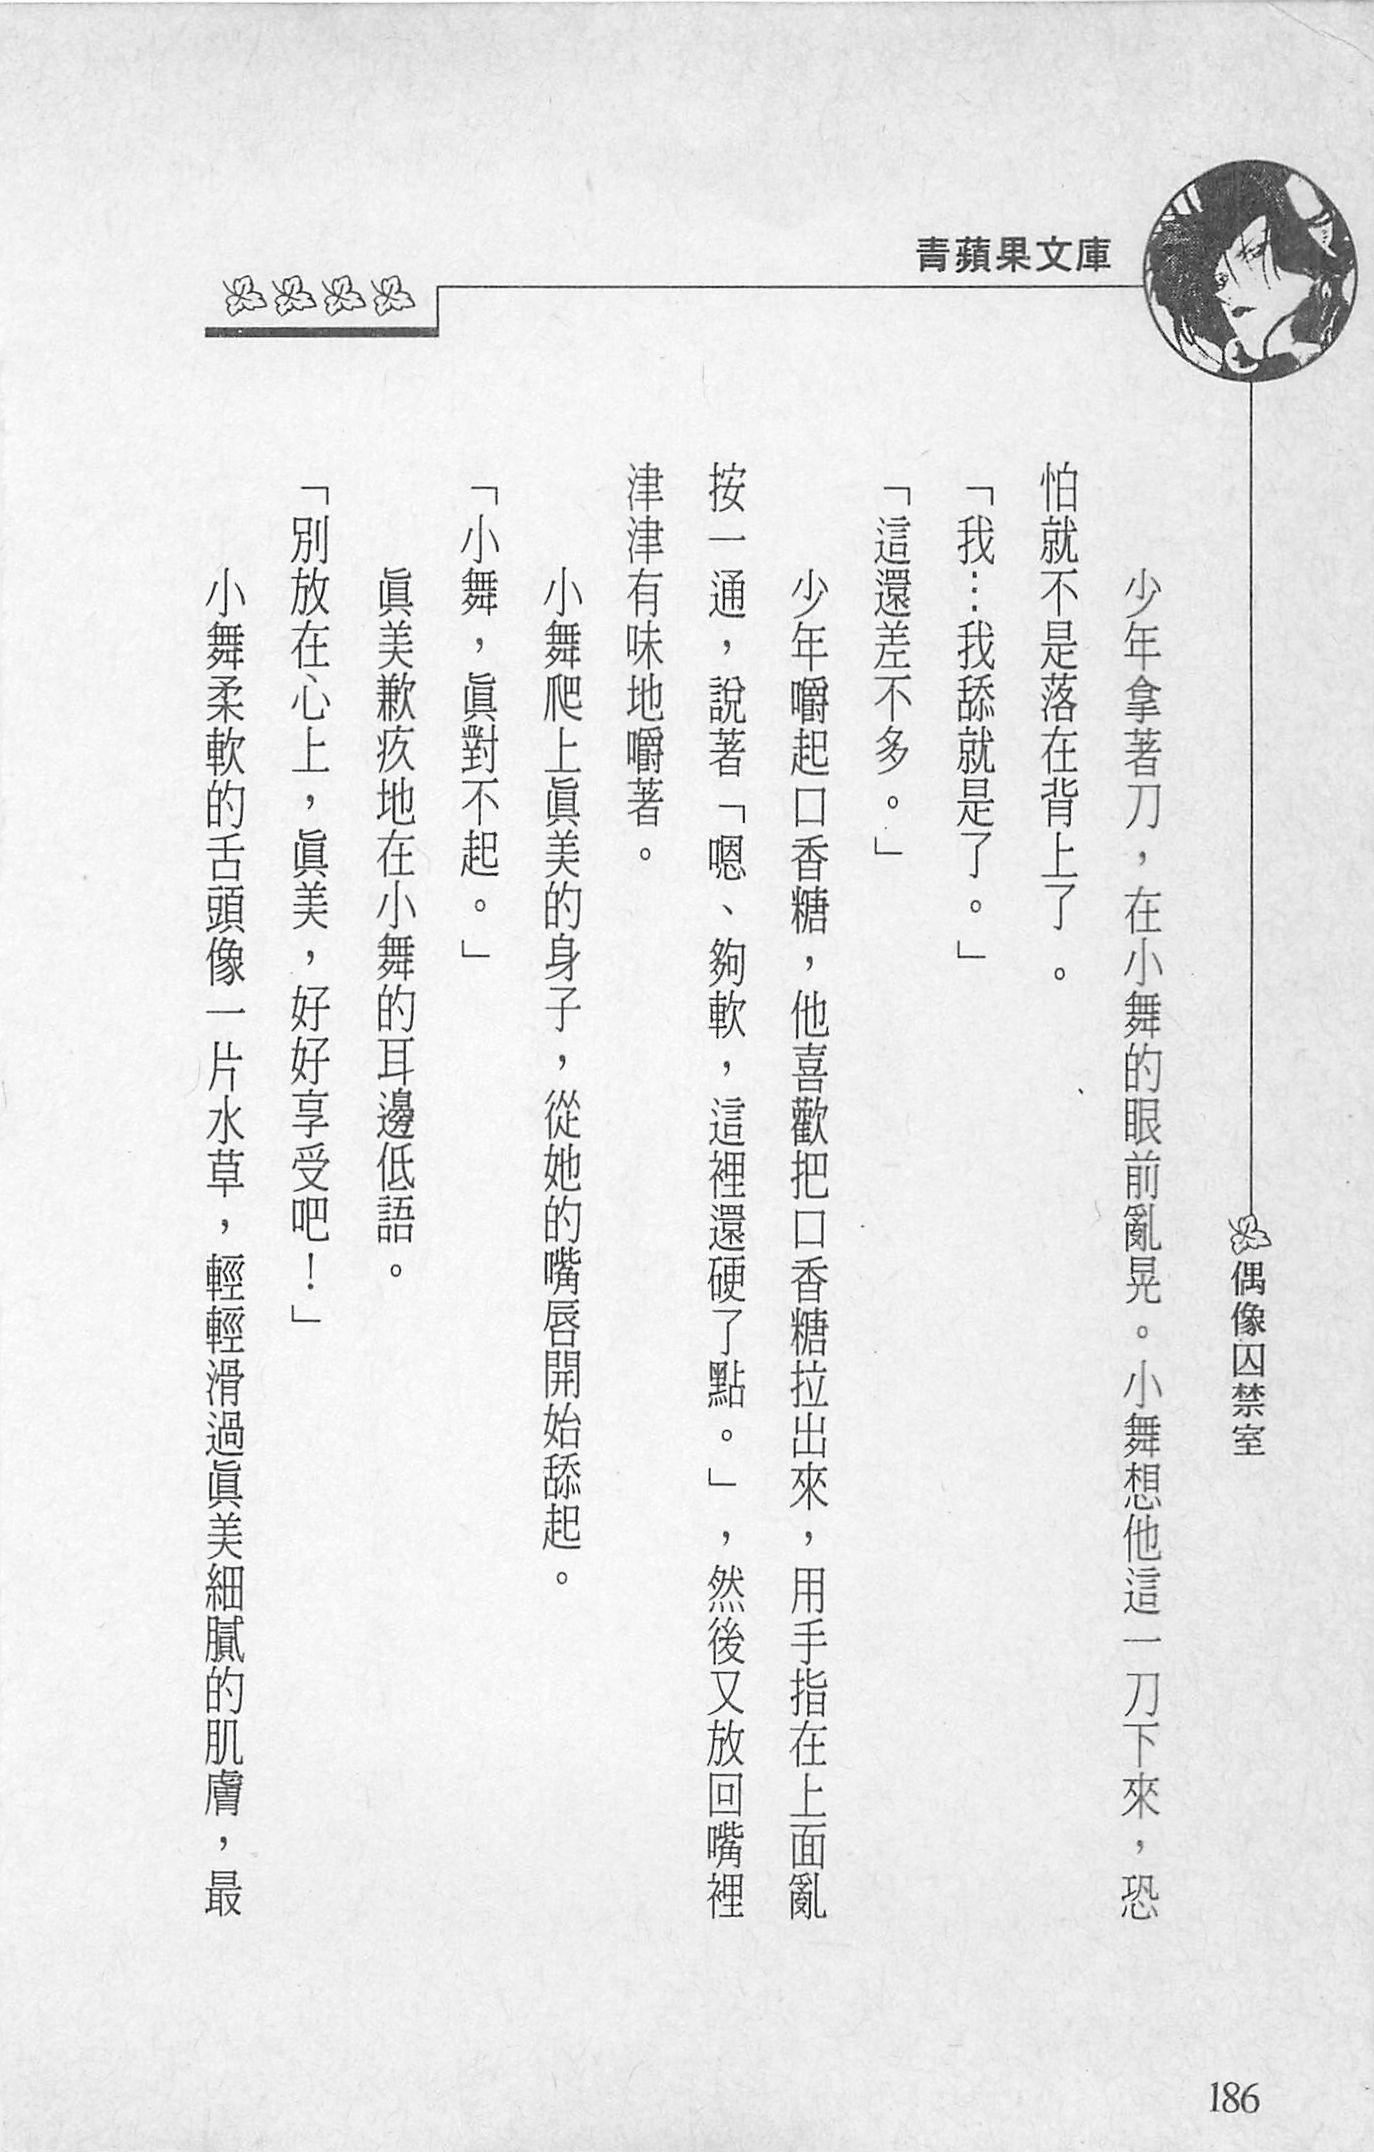 青蘋果文庫
偶像囚禁室
少年拿著刀，在小舞的眼前亂晃。小舞想他這一刀下來，恐
怕就不是落在背上了。
「我…我舔就是了。」
「這還差不多。」
少年嚼起口香糖，他喜歡把口香糖拉出來，用手指在上面亂
按一通，說著「嗯、夠軟，這裡還硬了點。」，然後又放回嘴裡
津津有味地嚼著。
小舞爬上眞美的身子，從她的嘴唇開始舔起。
「小舞，眞對不起。」
眞美歉疚地在小舞的耳邊低語。
「別放在心上，眞美，好好享受吧！」
小舞柔軟的舌頭像一片水草，輕輕滑過眞美細膩的肌膚，最
186